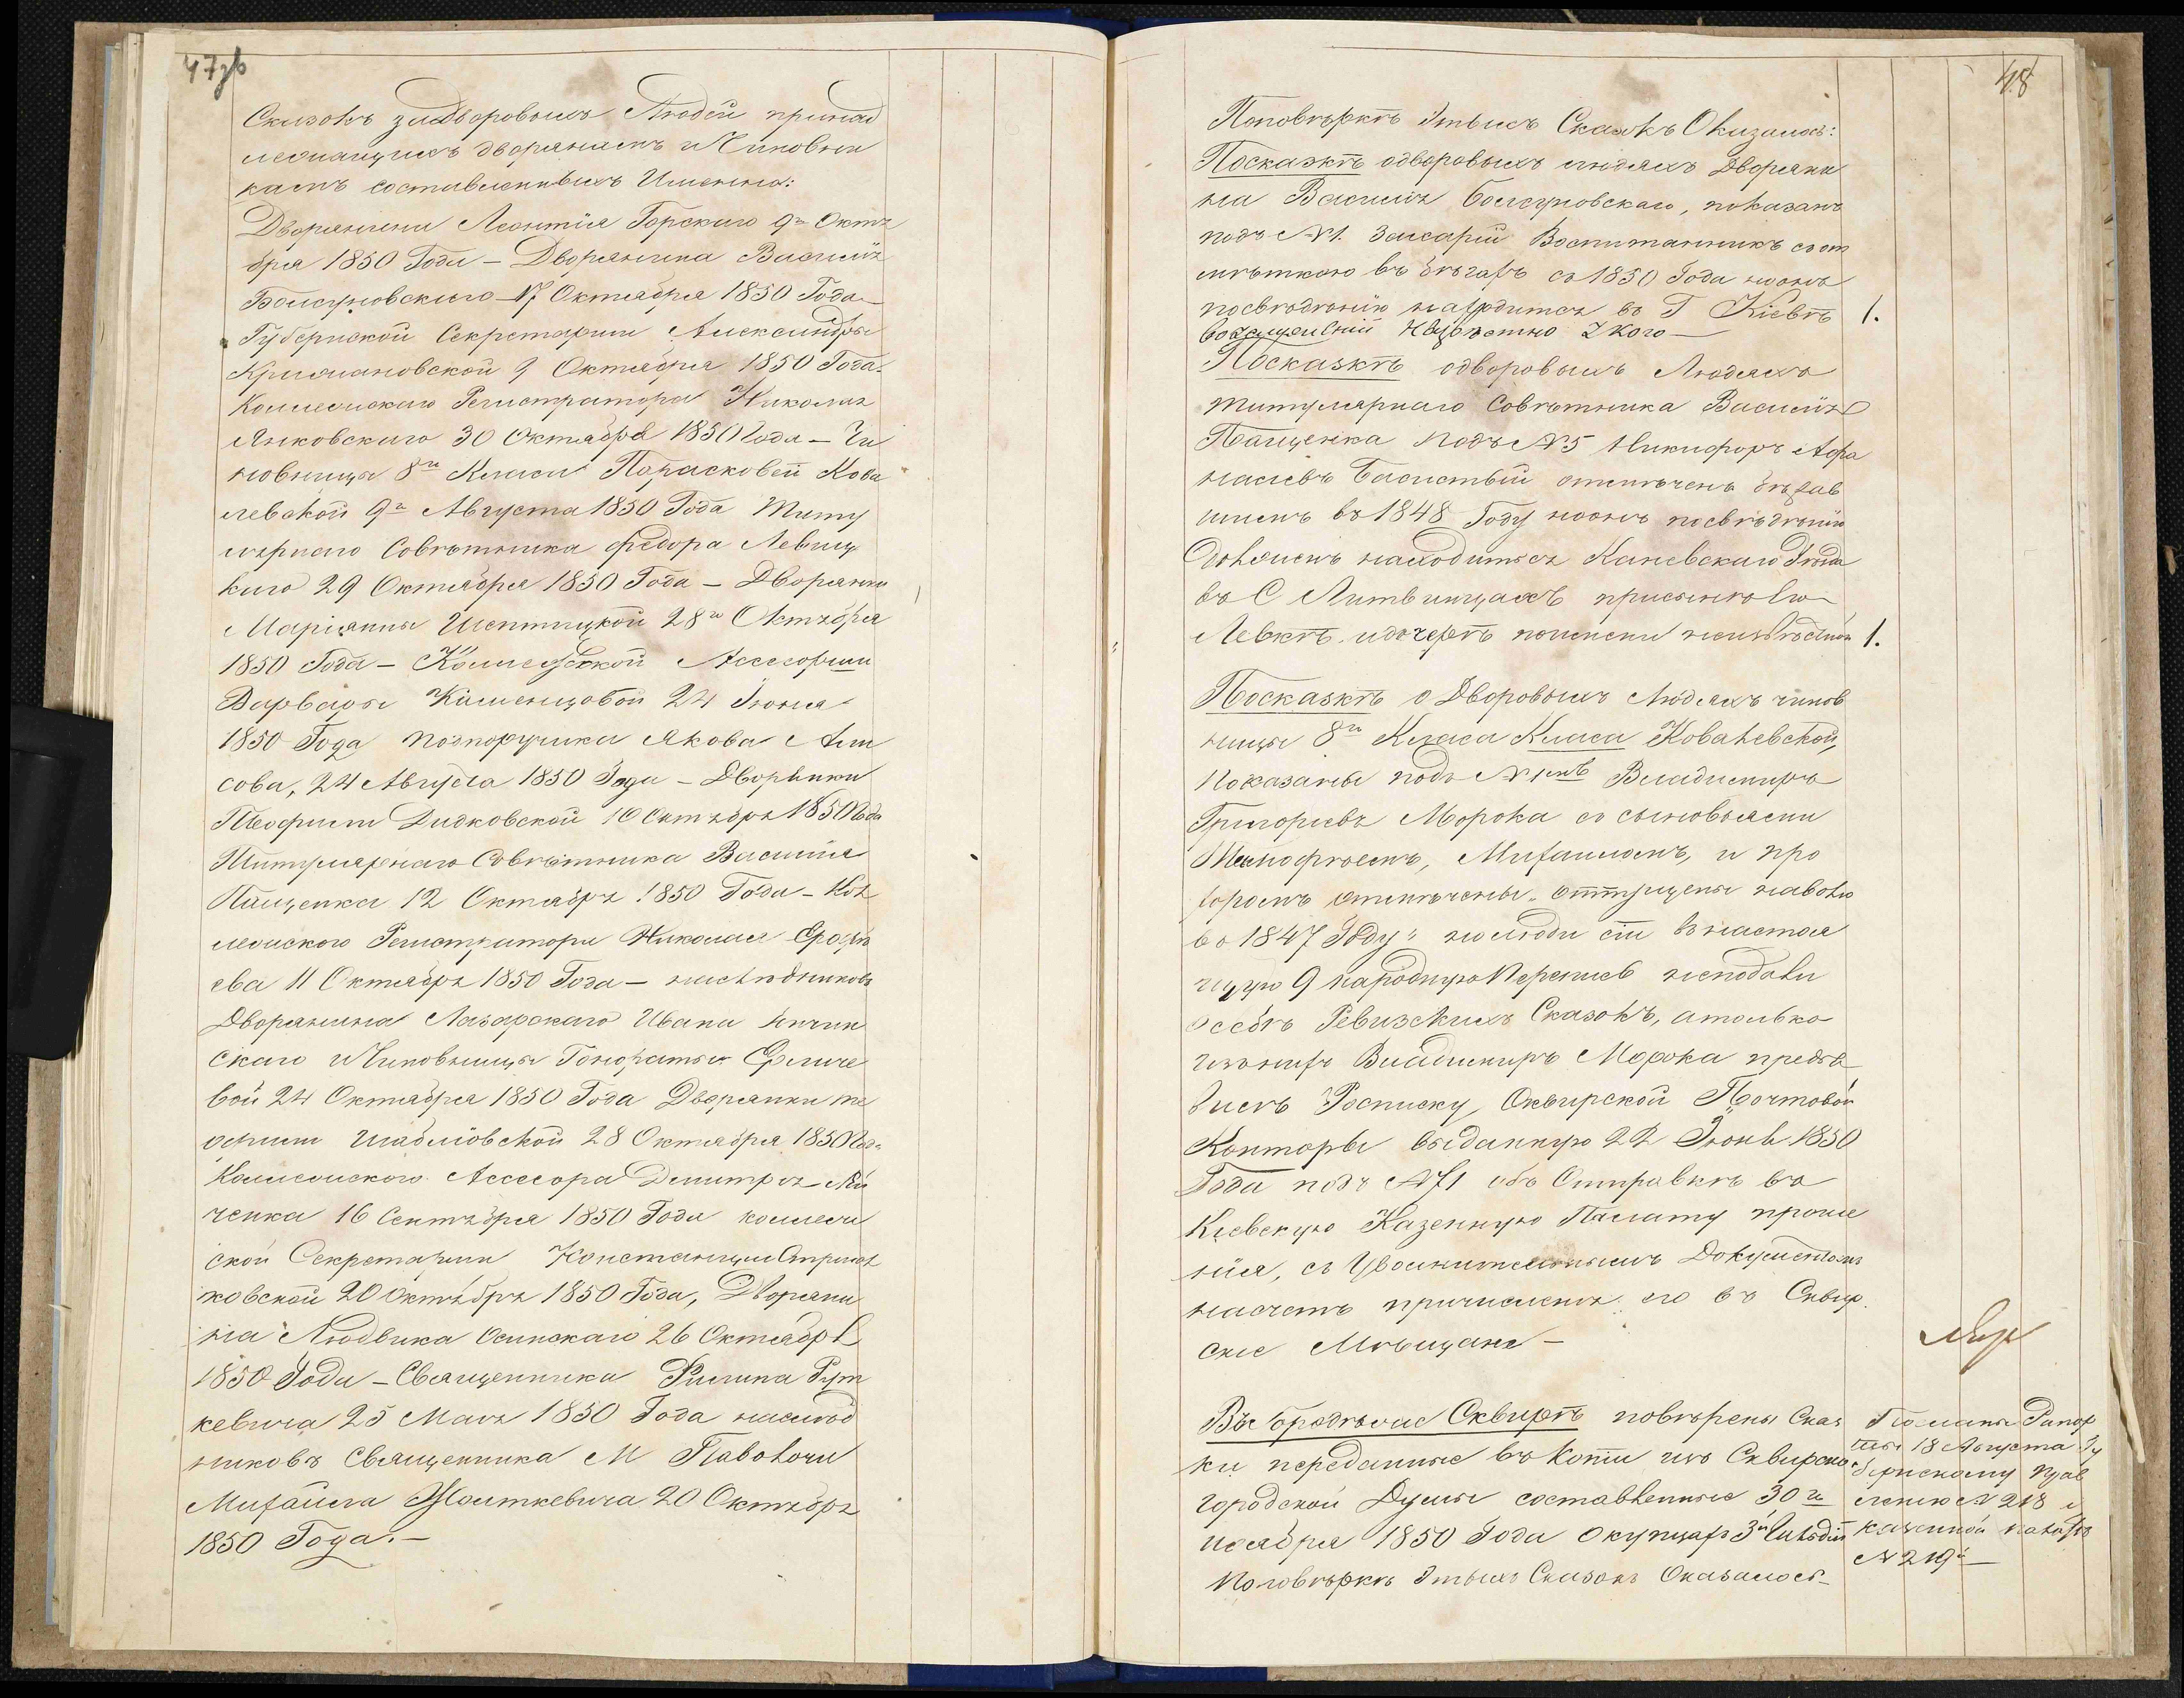 47зв
Сказокъ за Дворовыхъ Людей принад
лежащихъ дворянамъ и Чиновни
камъ составленныхъ Именно:
Дворянина Леонтія Горскаго 9го Октя
бря 1850 Года – Дворянина Василія
Болсуновскаго 17 Октября 1850 Года
Губернской Секретарши Александры
Крижановской 9 Октября 1850 Года
Коллежскаго Регистратора Николая
Янковскаго 30 Октября 1850 Года – Чи
новницы 8го Класа Парасковеи Кова
левской 9го Августа 1850 Года Титу
лярнаго Совѣтника Федора Левиц
каго 29 Октября 1850 Года – Дворянки
Маріанны Шептицкой 28го Октября
1850 Года – Коллежской Ассесорши
Варвары Каменцовой 24 Іюня
1850 Года подпоручика Якова
сова, 24 Августа 1850 Года – Дворянки
Теофили Дидковской 10 Октября 1850 Года
Титулярнаго Совѣтника Василія
Пащенка 12 Октября 1850 Года – Кол
лежского Регистратора Николая Ерофѣ
ева 11 Октября 1850 Года – наслѣдниковъ
Дворянина Лазарского Ивана
скаго и Чиновницы Гонораты
вой 24 Октября 1850 Года Дворянки те
офили Шабловской 28 Октября 1850 Года
Коллежского Ассесора Димитрія
ченка 16 Сентября 1850 Года коллеж
ской Секретарши Констанціи
ковской 20 октября 1850 Года, Дворяни
на Людвика Осинскаго 26 Октября
1850 Года – Священника Филипа Рут
кевича 25 Мая 1850 Года наслѣд
никовъ Священника М Паволочи
Михаила Жолткевича 20 Октября
1850 Года. –
48
Поповѣркѣ Этыхъ Сказокъ Оказалось:
Посказкѣ одворовыхъ людяхъ Дворяни
на Василія Болсуновскаго, показанъ
подъ №1. Захарій Воспитанникъ сот
мѣткою въ бѣгахъ съ 1850 Года нонъ
посвѣдѣнію находится въ Г Кіевѣ 1.
Неизвѣстно У кого –
Посказкѣ одворовыхъ Людяхъ
титулярнаго Совѣтника Василія
Пащенка подъ №5 Никифоръ Афа
насіевъ отмѣченъ бѣжав
шимъ въ 1848 Году нонъ посвѣдѣнію
долженъ находитьсь Каневскаго Уѣзда
въ С Литвинцахъ присынѣ Его
Левкѣ идочерѣ поимени неизвѣстной 1.
Посказкѣ о Дворовыхъ Людяхъ чинов
ницы 8го Класа Класа Ковалевской,
показаны подъ №1мъ Владимиръ
Григорьевъ Морока со сыновьями
Тимофѣемъ, Михаиломъ, и про
хоромъ отмѣчены „отпущены наволю
въ 1847 Году„ нолюди сіи внастоя
щую 9 народную Перепись неподали
особѣ Ревизскихъ Сказокъ, атолько
изънихъ Владимиръ Морока предъя
вилъ Росписку, Сквирской Почтовой
Конторы выданную 22 Іюня 1850
Года подъ №71 объ Отправкѣ въ
Кіевскую Казенную Палату проше
нія, съ Увольнительнымъ Документомъ
насчетъ причисленія его въ Сквир
скіе Мѣщане –
Въ городѣ Сквирѣ повѣрены Сказ
ки переданные въ Копіи изъ Сквирской
городской Думы составленные 30го
ноября 1850 Года Окупцахъ 3й Гильдіи
Поповѣркѣ Этыхъ Сказокъ Оказалось
Посланы Рапор
ты 18 Августа Гу
бернскому Прав
ленію №218 и
казенной палатѣ
№219й –